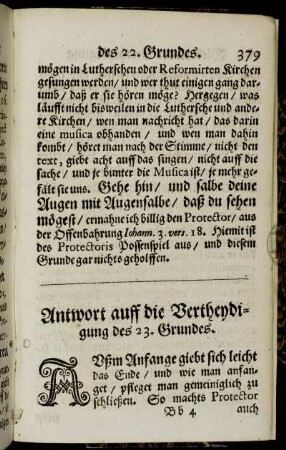 des 22. Grundes. 379
mögen in Lutherschen oder Reformirten Kirchen
gesungen werden/ und wer thut einigen gang dar-
umb/ daß er sie hören möge? Hergegen/ was
läufft nicht bisweilen in die Luthersche und ande-
re Kirchen/ wen man nachricht hat/ das darin
eine musica obhanden/ und wen man dahin
kombt/ höret man nach der Stimme/ nicht den
text, giebt acht auff das singen/ nicht auff die
sache/ und je bunter die Musica ist/ je mehr ge-
fält sie uns. Gehe hin/ und salbe deine
Augen mit Augensalbe/ daß du sehen
mögest/ ermahne ich billig den Protector/ aus
der Offenbahrung Iohann. 3. vers. 18. Hiemit ist
des Protectoris Possenspiel aus/ und diesem
Grunde gar nichts geholffen.
Antwort auff die Vertheydi-
gung des 23. Grundes.
AUßm Anfange giebt sich leicht
das Ende/ und wie man anfan-
get/ pfleget man gemeiniglich zu
schließen. So machts Protector
Bb 4 auch